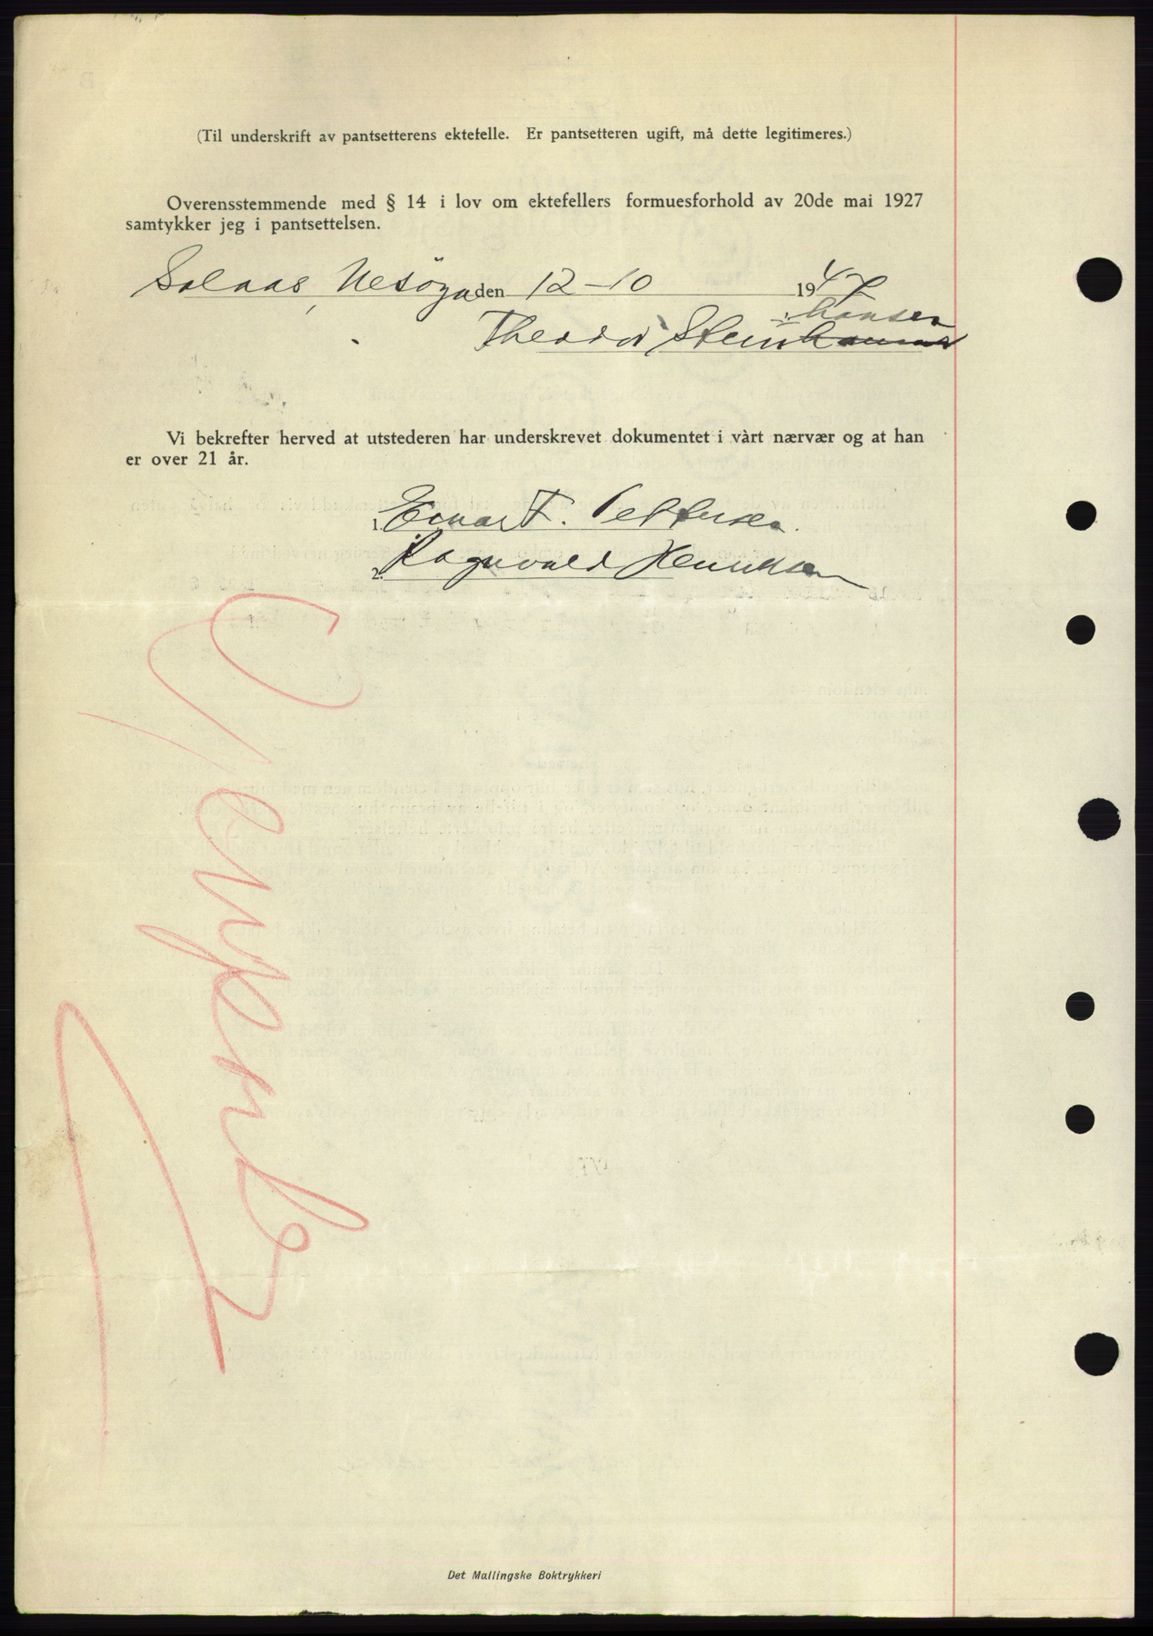 (Til underskrift av pantsetterens ektefelle. Er pantsetteren ugift, må dette legitimeres.)
Overensstemmende med § 14 i lov om ektefellers formuesforhold av 20de mai 1927
samtykker jeg i pantsettelsen.
Solaas, Nesöya den 12-10 1947
hansen
Theodor Stein
Vi bekrefter herved at utstederen har underskrevet dokumentet i vårt nærvær og at han
er over 21 år.
1. Einar F. Pettersen.
2. Ragnvald Henriksen
Det Mallingske Boktrykkeri